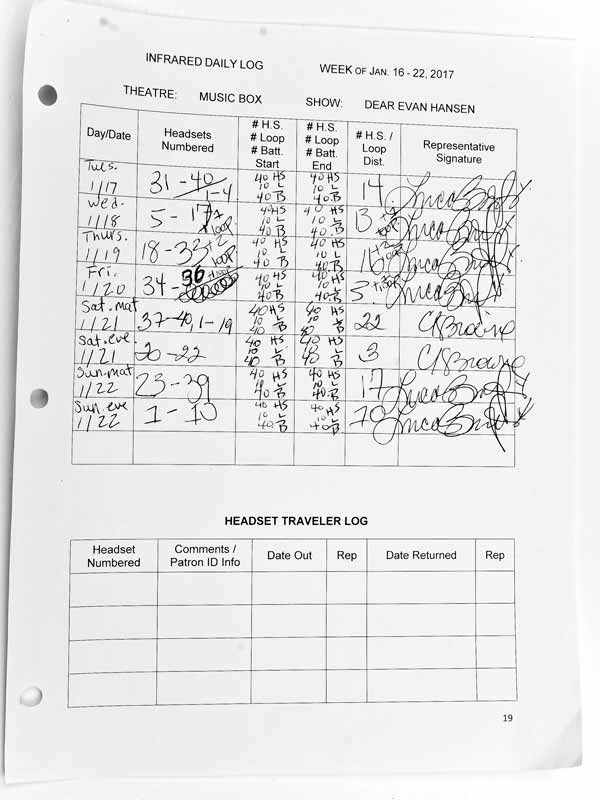 INFRARED DAILY LOG WEEK OF JAN. 16 - 22, 2017
THEATRE: MUSIC BOX SHOW: DEAR EVAN HANSEN
Day/Date Headsets Numbered # H.S. # Loop # Batt. Start # H.S. # Loop # Batt. End # H.S. / Loop Dist. Representative Signature
Tues. 1/17 31-40 1-4 40 HS 10 L 40 B 40 HS 10 L 40 B 14
Wed. 1/18 5-17 + loop 40 HS 10 L 40 B 40 HS 10 L 40 B 13
Thurs. 1/19 18-33 +2 loop 40 HS 10 L 40 B 40 HS 10 L 40 B 16 +2 loop
Fri. 1/20 34-36 40 HS 10 L 40 B 40 HS 10 L 40 B 3
Sat. mat 1/21 37-40, 1-19 40 HS 10 L 40 B 40 HS 10 L 40 B 22
Sat. eve. 1/21 20-22 40 HS 10 L 40 B 40 HS 10 L 40 B 3
Sun. mat 1/22 23-39 40 HS 10 L 40 B 40 HS 10 L 40 B 17
Sun. eve 1/22 1-10 40 HS 10 L 40 B 40 HS 10 L 40 B 10
HEADSET TRAVELER LOG
Headset Numbered Comments / Patron ID Info Date Out Rep Date Returned Rep
19